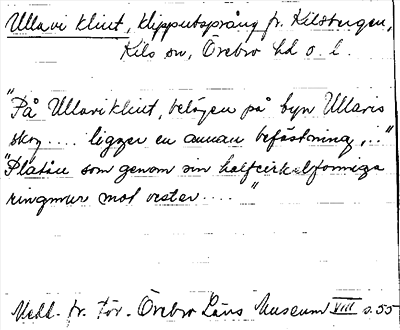 Ullavi klint, klipputsprång fr. Kilsbergen,
Kils sn, Örebro hd o. l.
"På Ullavi klint, belägen på byn Ullavis
skog .... ligger en annan befästning, .."
"Platån som genom sin halfcirkelformiga
ringmur mot vester .... "
Medd. fr. För. Örebro Läns Museum VIII s. 55